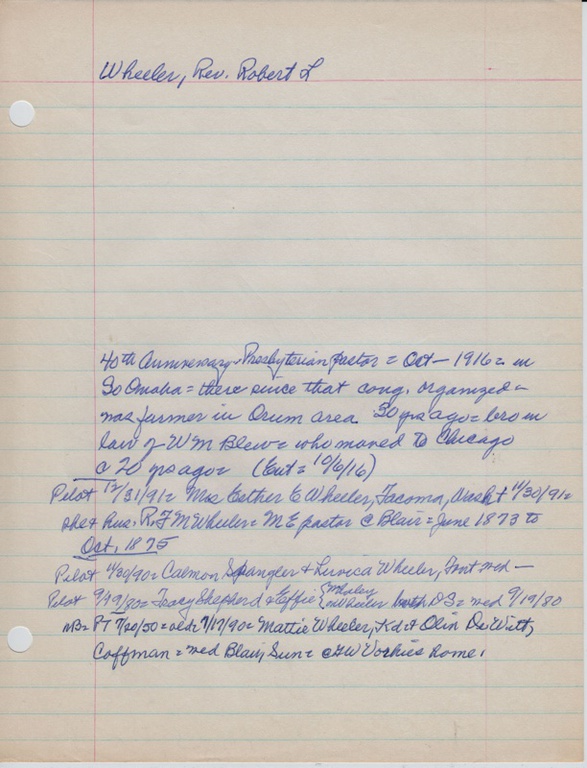 Wheeler, Rev. Robert L
40th Anniversary - Presbyterian pastor = Oct - 1916 = in
So Omaha = there since that cong. organized =
was farmer in Orum area 30 yrs ago = bro in
law of W M Blew = who moved to Chicago
c 20 yrs ago = (Ent = 10/6/16)
Pilot 12/31/91 = Mrs Esther E Wheeler, Tacoma, Wash + 11/30/91 =
she & hus. R. F M Wheeler = M E pastor @ Blair = June 1873 to
Oct, 1875
Pilot 4/30/90 = Calmon Spangler & Luveca Wheeler, Font wed -
Pilot 9/49/80 = Tracy Shepherd & Effie Wheeler both DS = wed 9/19/80
NB = PT 7/20/50 = old = 7/17/90 = Mattie Wheeler, Kd & Olin DeWitt,
Coffman = wed Blair, Sun = @ G W Vorhies home.